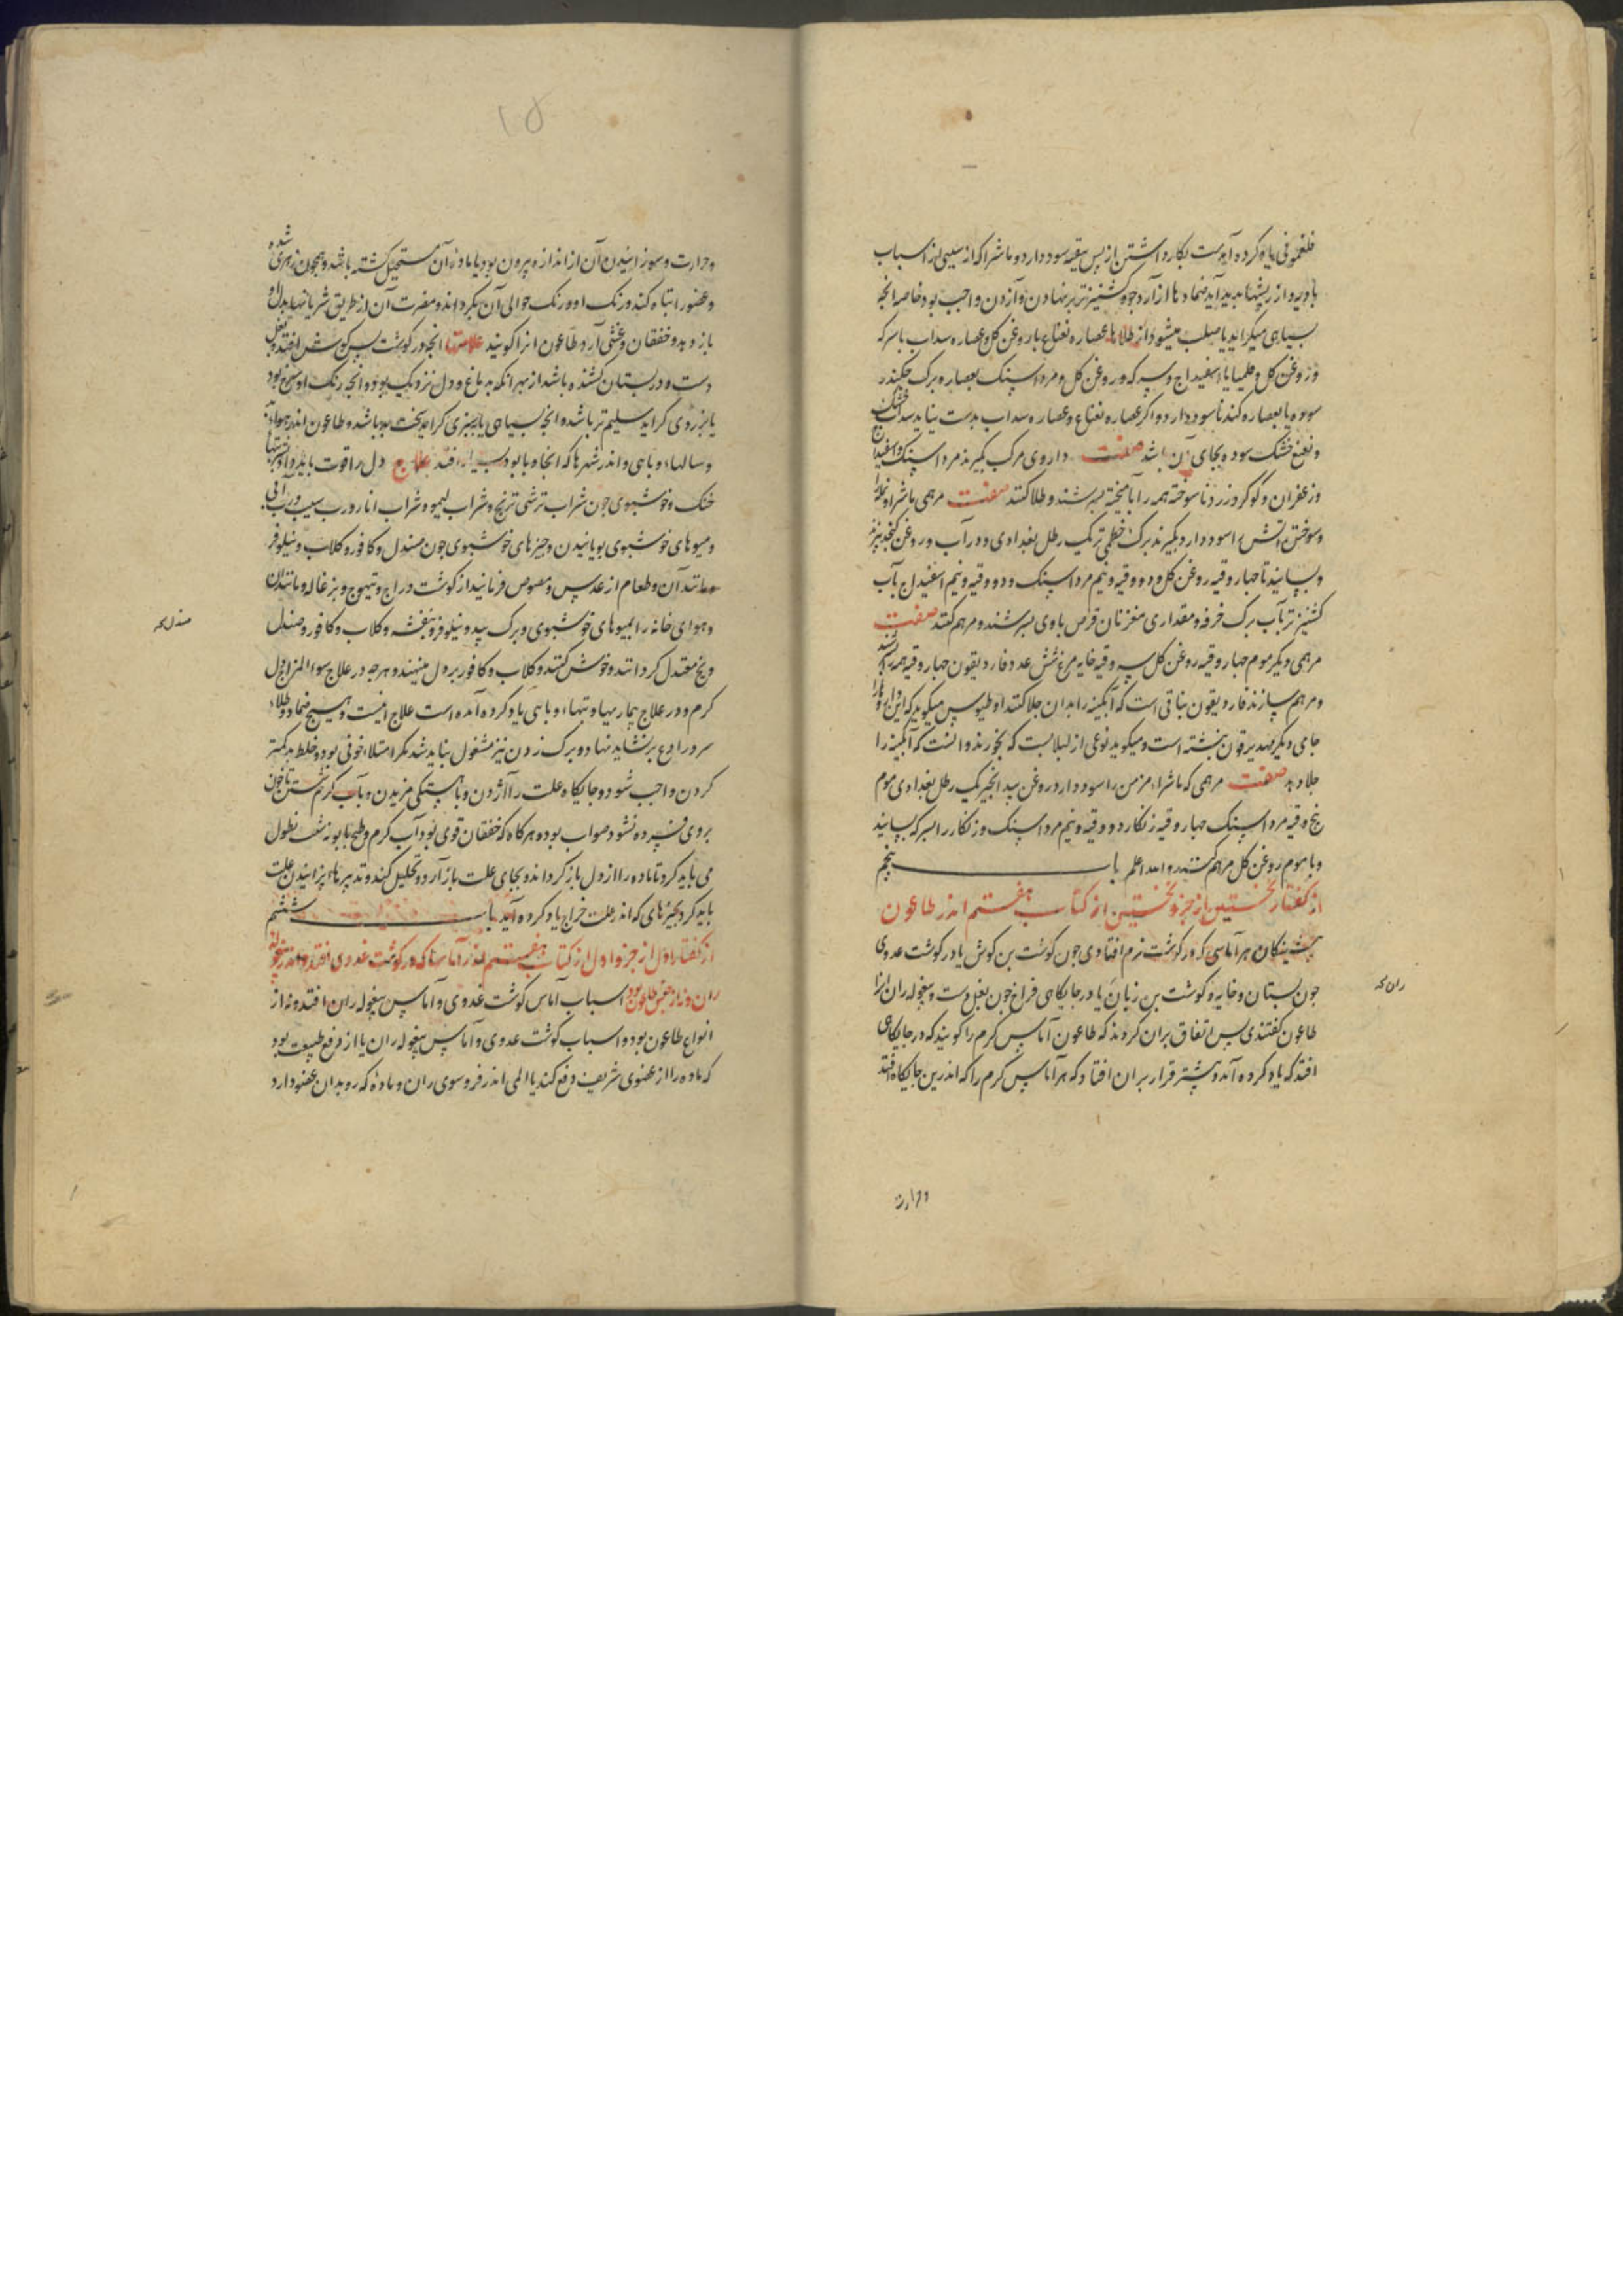 فلغمونی یاد کرده آمدست بکار داشتن از پس تنقیه سود دارد و ماشرا که از سببی از اسباب
بادیه و از ریشها پدید آید ضماد ها از آرد جو و کشنیز تر برنهادن و آزدن واجب بود خاصه انجه
بسیاهی میکراید یا صلب میشود از طلاها عصاره نعناع با روغن کل و عصاره سداب با سرکه
و روغن کل و اسفیداج و سرکه و روغن کل و مرداسنک بعصاره برک جکندر
سوده یا بعصاره کندنا سود دارد و اکر عصاره نعناع و عصاره سداب بدست نیاید سداب خشک
و نعنع خشک سوده بجای آن باشد صفت داروی مرکب بکیرند مرداسنک و اسفیداج
و زعفران و کوکرد زرد ناسوخته همه را آمیخته بسرشند و طلا کنند صفت مرهمی ماشرا و نمله
و سوختن آتش را سود دارد بکیرند برک خطمی تر یک رطل بغدادی و در آب و روغن کنجد بپزند
و بسایند تا جهار وقیه روغن کل و دو وقیه و نیم مرداسنک و دو وقیه و نیم اسفیداج بآب
کشنیز تر بآب برک خرفه و مقداری مغز نان قرص باوی بسرشند و مرهم کنند صفت
مرهمی دیکر موم جهار وقیه روغن کل سه وقیه خایه مرغ شش عدد فاردیقون جهار وقیه همه بسرشند
و مرهم سازند فاردیقون نباتی است که آبکینه را بدان جلا کنند اوطیوس میکوید که این دارو را
جای دیکر مهدیرقون نبشته است و میکوید نوعی از لبلابست که بخورند و انست که آبکینه را
جلا دهد صفت مرهمی که ماشراء مزمن را سود دارد روغن بید انجیر یک رطل بغدادی موم
پنج وقیه مرداسنک جهار وقیه زنکار دو وقیه و نیم مرداسنک و زنکار را بسرکه بسایند
و با موم روغن کل مرهم کنند والله اعلم باب پنجم
از کفتار نخستین از جزو نخستین از کتاب هفتم اندر طاعون
پیشینکان هر آماسی که در کوشت نرم افتادی جون کوشت بن کوش یا در کوشت غددی
جون بستان و خایه و کوشت بن زبان یا در جایکاهی فراخ جون بغل دست و بیغوله ران انرا
طاعون کفتندی پس اتفاق بران کردند که طاعون آماس کرم را کویند که در جایکاهی
افتد که یاد کرده آمد و بیشتر قرار بران افتاد که هر آماس کرم را که اندرین جایکاه افتد
و حرارت
ران
و حرارت و سوزانیدن آن از اندازه بیرون بود یا ماده آن مستحیل کشته باشد و همجون زهری شده
و عضو را تباه کند و رنک او و رنک حوالی آن بکرداند و مضرت آن از طریق شریانها بدل
باز دهد و خفقان و غشی آرد طاعون انرا کویند علامتها انجه در کوشت پس کوش افتد و بغل
دست و در بستان کشنده باشد از بهر انکه بدماغ و دل نزدیک بود و انجه رنک او سرخ بود
یا بزردی کراید سلیم تر باشد و انجه بسیاهی یا بسبزی کراید سخت بد باشد و طاعون اندر هوا
و سالهاء وبایی و اندر شهرها که انجا وبا بود بسیار افتد علاج دل را قوت باید داد بشربتها
خنک و خوشبوی جون شراب ترشی ترنج و شراب لیمو و شراب انار و رب سیب و رب آبی
و میوهای خوشبوی بویانیدن و جیزهای خوشبوی جون صندل و کافور و کلاب و نیلوفر
و مانند آن و طعام از عدس و مصوص فرمایند از کوشت دراج و تیهوج و بزغاله و مانند آن
و هوای خانه را بمیوهای خوشبوی و برک بید و نیلوفر و بنفشه و کلاب و کافور و صندل
و یخ معتدل کردانند و خوش کنند و کلاب و کافور بر دل مینهند و هرجه در علاج سوء المزاج دل
کرم و در علاج بیماریها و تبهاء وبایی یاد کرده آمده است علاج اینست و هیچ ضماد و طلاء
سرد رادع برنشاید نهاد و برک زدن نیز مشغول نباید شد مکر امتلاء خونی بود و خلط بد کمتر
کردن واجب شود و جایکاه علت را آژدن و باهستکی مزیدن و بآب کرم شستن تا خون
بروی فسرده نشود صواب بود و هرکاه که خفقان قوی بود آب کرم و طبیخ بابونه شبت نطول
می باید کرد تا ماده را از دل باز کرداند و بجای علت باز آرد و تحلیل کند و تدبیرهاء پزانیدن علت
باید کرد بجیزهای که اندر علت خراج یاد کرده آید باب ششم
از کفتار اول از جزو اول از کتاب هفتم اندر آماسها که در کوشت غددی افتد و اندر بیغوله
ران و نه از جنس طاعون بود اسباب آماس کوشت غددی و آماس بیغوله ران افتد و نه از
انواع طاعون بود و اسباب کوشت غددی و آماس بیغوله ران یا از دفع طبیعت بود
که ماده را از عضوی شریف دفع کند یا المی اندر فروسوی ران و ماده که روبدان عضو دارد
صندل